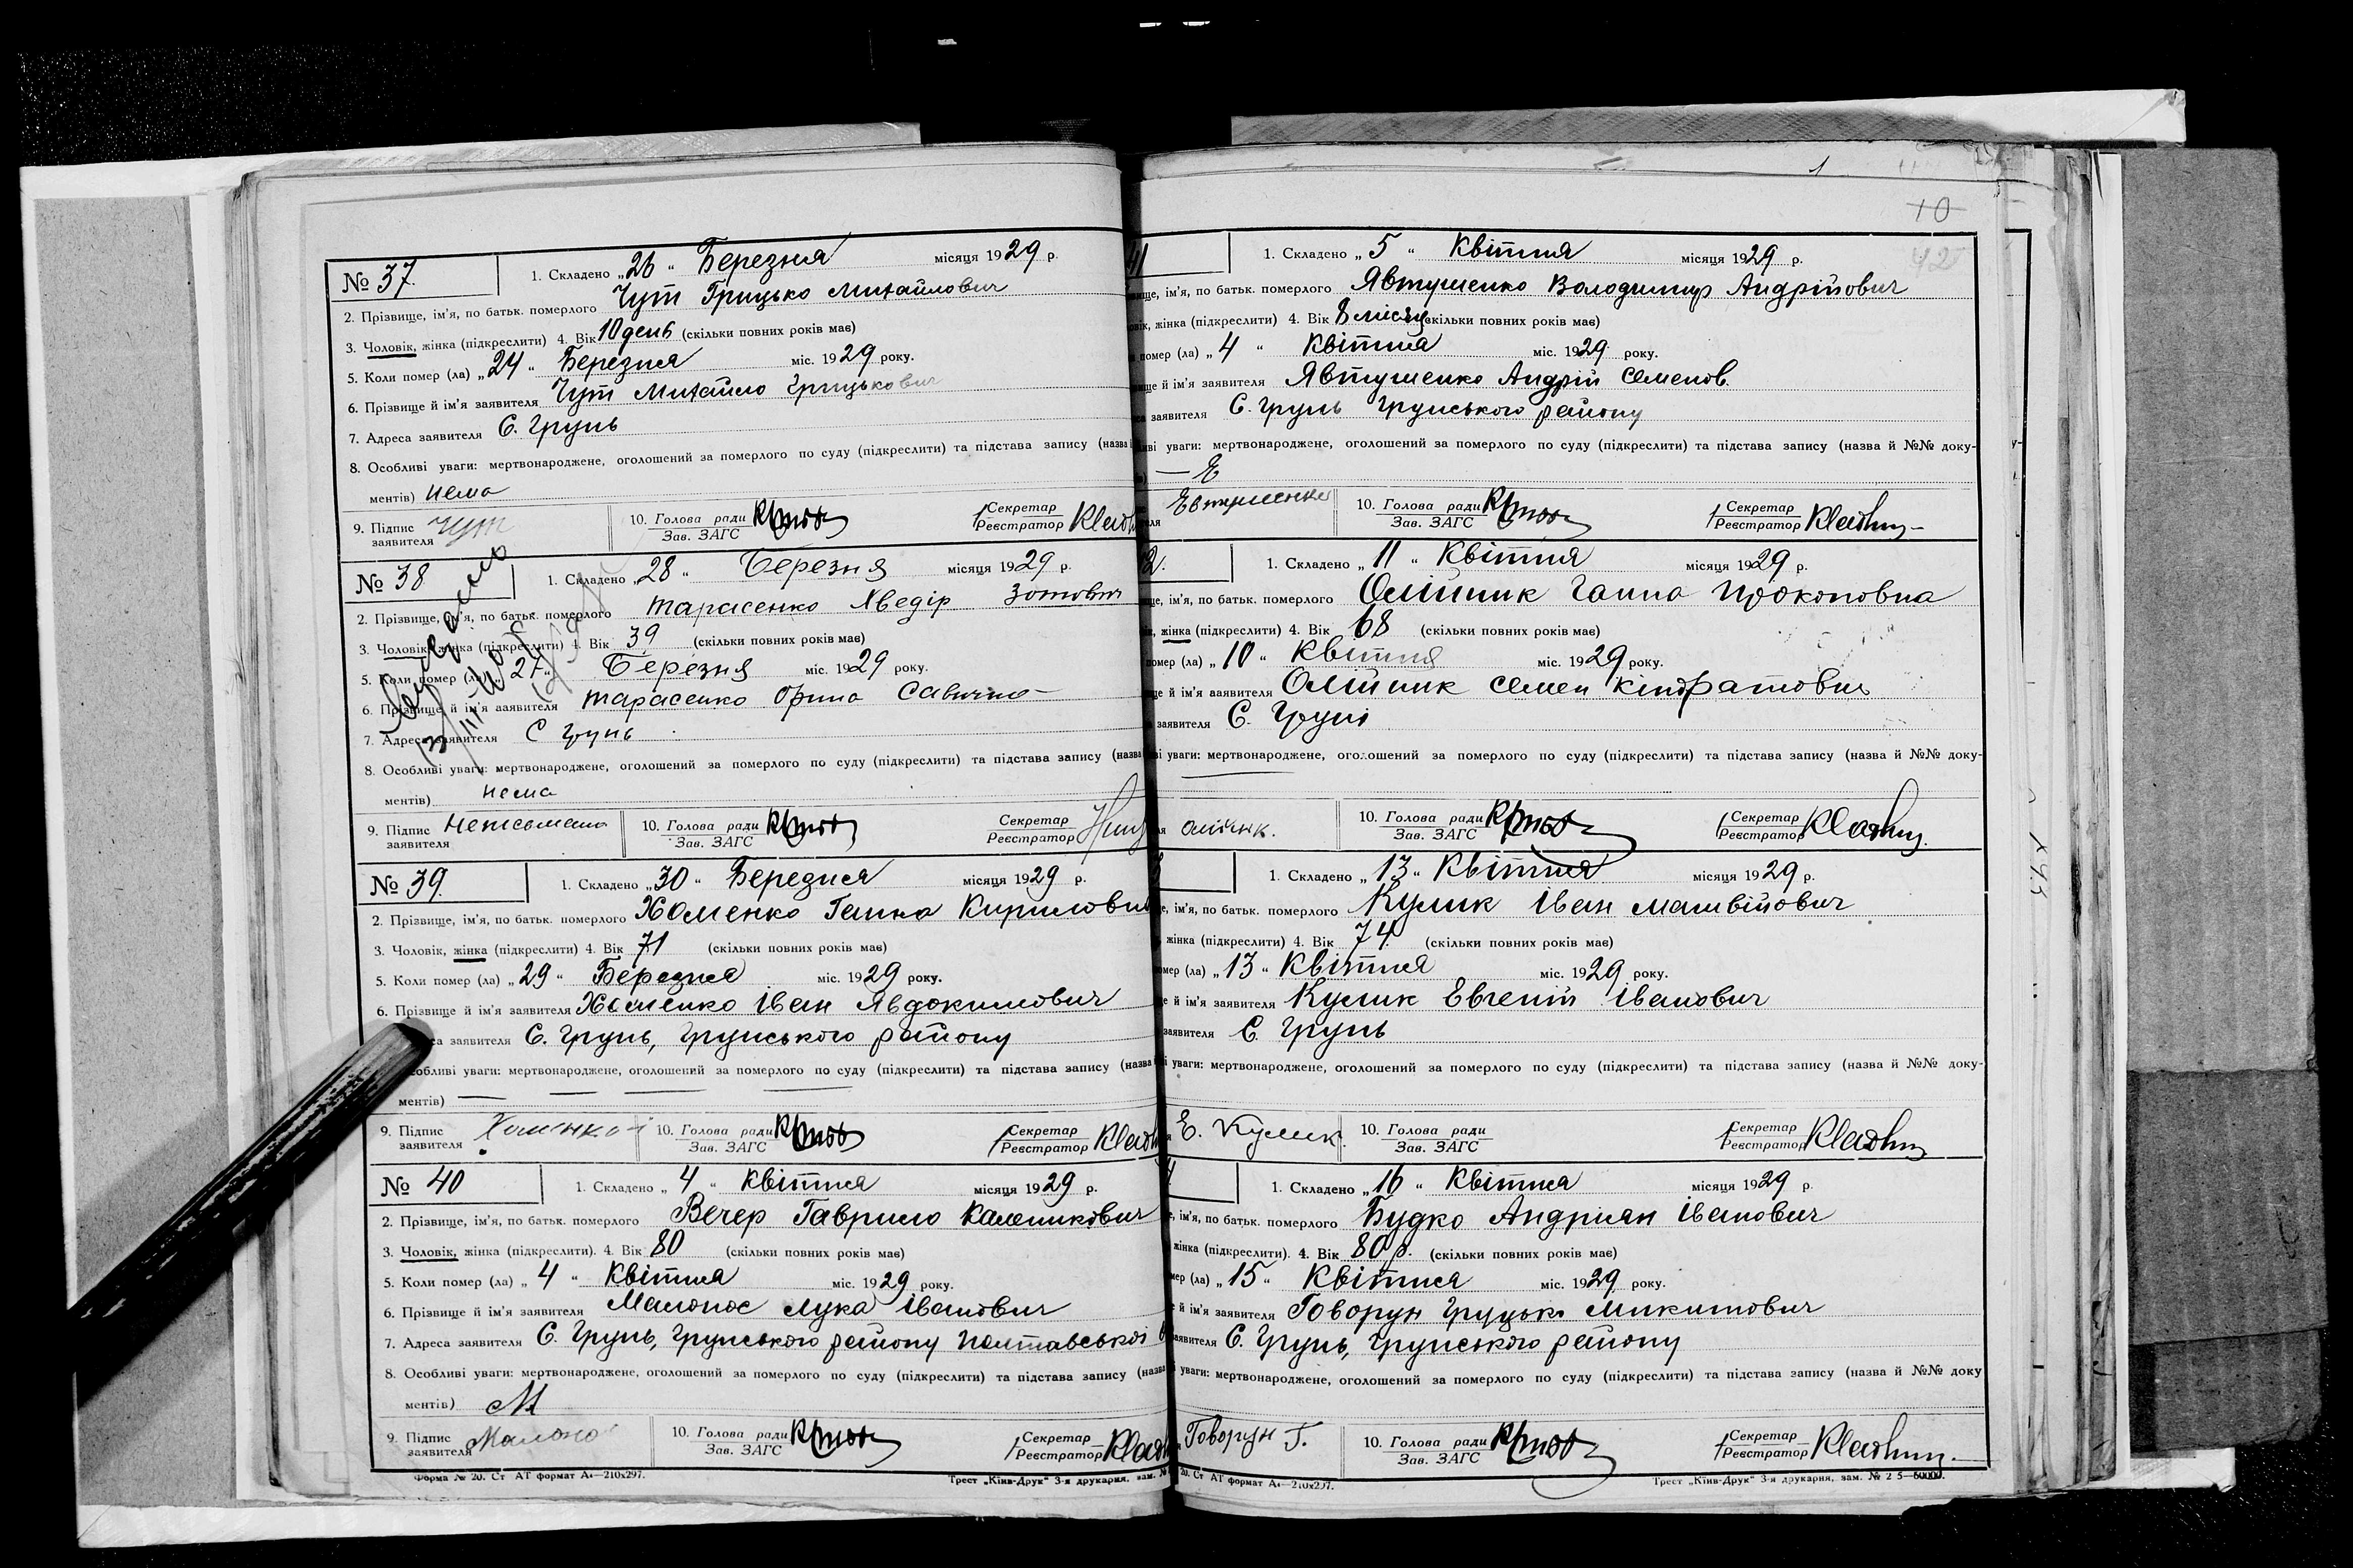 № 37. 1. Складено „26“ Березня місяця 1929 р.
2. Прізвище, ім'я, по батьк. померлого Чут Грицько Михайлович
3. Чоловік, жінка (підкреслити) 4. Вік 10 день (скільки повних років має)
5. Коли помер (ла) „24“ Березня міс. 1929 року.
6. Прізвище й ім'я заявителя Чут Михайло Грицькович
7. Адреса заявителя С. Грунь
8. Особливі уваги: мертвонароджене, оголошений за померлого по суду (підкреслити) та підстава запису (назва
ментів) нема
9. Підпис заявителя Чут 10. Голова ради Зав. ЗАГС Секретар Реєстратор
№ 38 1. Складено „28“ Березня місяця 1929 р.
2. Прізвище, ім'я, по батьк. померлого Тарасенко Хведір Зотович
3. Чоловік, жінка (підкреслити) 4. Вік 39 (скільки повних років має)
5. Коли помер (ла) „27“ Березня міс. 1929 року.
6. Прізвище й ім'я заявителя Тарасенко Орина Савична
7. Адреса заявителя С Грунь
8. Особливі уваги: мертвонароджене, оголошений за померлого по суду (підкреслити) та підстава запису (назва
ментів) нема
9. Підпис заявителя Неписьмена 10. Голова ради Зав. ЗАГС Секретар Реєстратор
№ 39. 1. Складено „30“ Березня місяця 1929 р.
2. Прізвище, ім'я, по батьк. померлого Хоменко Ганна Кирилови
3. Чоловік, жінка (підкреслити) 4. Вік 71 (скільки повних років має)
5. Коли помер (ла) „29“ Березня міс. 1929 року.
6. Прізвище й ім'я заявителя Хоменко Іван Явдокимович
са заявителя С. Грунь, Грунського району
особливі уваги: мертвонароджене, оголошений за померлого по суду (підкреслити) та підстава запису (назва
ментів) — — —
9. Підпис заявителя Хоменко 10. Голова ради Зав. ЗАГС Секретар Реєстратор
№ 40 1. Складено „4“ Квітня місяця 1929 р.
2. Прізвище, ім'я, по батьк. померлого Вечер Гаврило Каленикович
3. Чоловік, жінка (підкреслити). 4. Вік 80 (скільки повних років має)
5. Коли помер (ла) „4“ Квітня міс. 1929 року.
6. Прізвище й ім'я заявителя Малонос Лука Іванович
7. Адреса заявителя С. Грунь, Грунського району Полтавської
8. Особливі уваги: мертвонароджене, оголошений за померлого по суду (підкреслити) та підстава запису (назва
ментів) М
9. Підпис заявителя Малоно 10. Голова ради Зав. ЗАГС Секретар Реєстратор
Форма № 20. Ст АТ формат А4—210х297. Трест „Київ-Друк“ 3-я друкарня, зам. №
10
42
41 1. Складено „5“ Квітня місяця 1929 р.
ище, ім'я, по батьк. померлого Явтушенко Володимир Андрійович
овік, жінка (підкреслити) 4. Вік 8 місяц (скільки повних років має)
помер (ла) „4“ Квітня міс. 1929 року.
ище й ім'я заявителя Явтушенко Андрій Семенов.
са заявителя С. Грунь Грунського району
ві уваги: мертвонароджене, оголошений за померлого по суду (підкреслити) та підстава запису (назва й №№ доку-
— Е
Евтушенко 10. Голова ради Зав. ЗАГС Секретар Реєстратор
2. 1. Складено „11“ Квітня місяця 1929 р.
ще, ім'я, по батьк. померлого Олійник Ганна Прокоповна
к, жінка (підкреслити) 4. Вік 68 (скільки повних років має)
омер (ла) „10“ Квітня міс. 1929 року.
ще й ім'я заявителя Олійник Семен Кіндратович
заявителя С. Грунь
ві уваги: мертвонароджене, оголошений за померлого по суду (підкреслити) та підстава запису (назва й №№ доку-
олійник. 10. Голова ради Зав. ЗАГС Секретар Реєстратор
3 1. Складено „13“ Квітня місяця 1929 р.
е, ім'я, по батьк. померлого Кулик Іван Матвійович
жінка (підкреслити) 4. Вік 74 (скільки повних років має)
омер (ла) „13“ Квітня міс. 1929 року.
е й ім'я заявителя Кулик Евгеній Іванович
заявителя С. Грунь
і уваги: мертвонароджене, оголошений за померлого по суду (підкреслити) та підстава запису (назва й №№ доку-
Е. Кулик. 10. Голова ради Зав. ЗАГС Секретар Реєстратор
1. Складено „16“ Квітня місяця 1929 р.
е, ім'я, по батьк. померлого Будко Андриан Іванович
жінка (підкреслити). 4. Вік 80 р. (скільки повних років має)
мер (ла) „15“ Квітня міс. 1929 року.
е й ім'я заявителя Говорун Грицько Микитович
аявителя С. Грунь, Грунського району
уваги: мертвонароджене, оголошений за померлого по суду (підкреслити) та підстава запису (назва й №№ доку
Говорун Г. 10. Голова ради Зав. ЗАГС Секретар Реєстратор
20. Ст АТ формат А4—210х297. Трест „Київ-Друк“ 3-я друкарня, зам. № 2 5—60000.